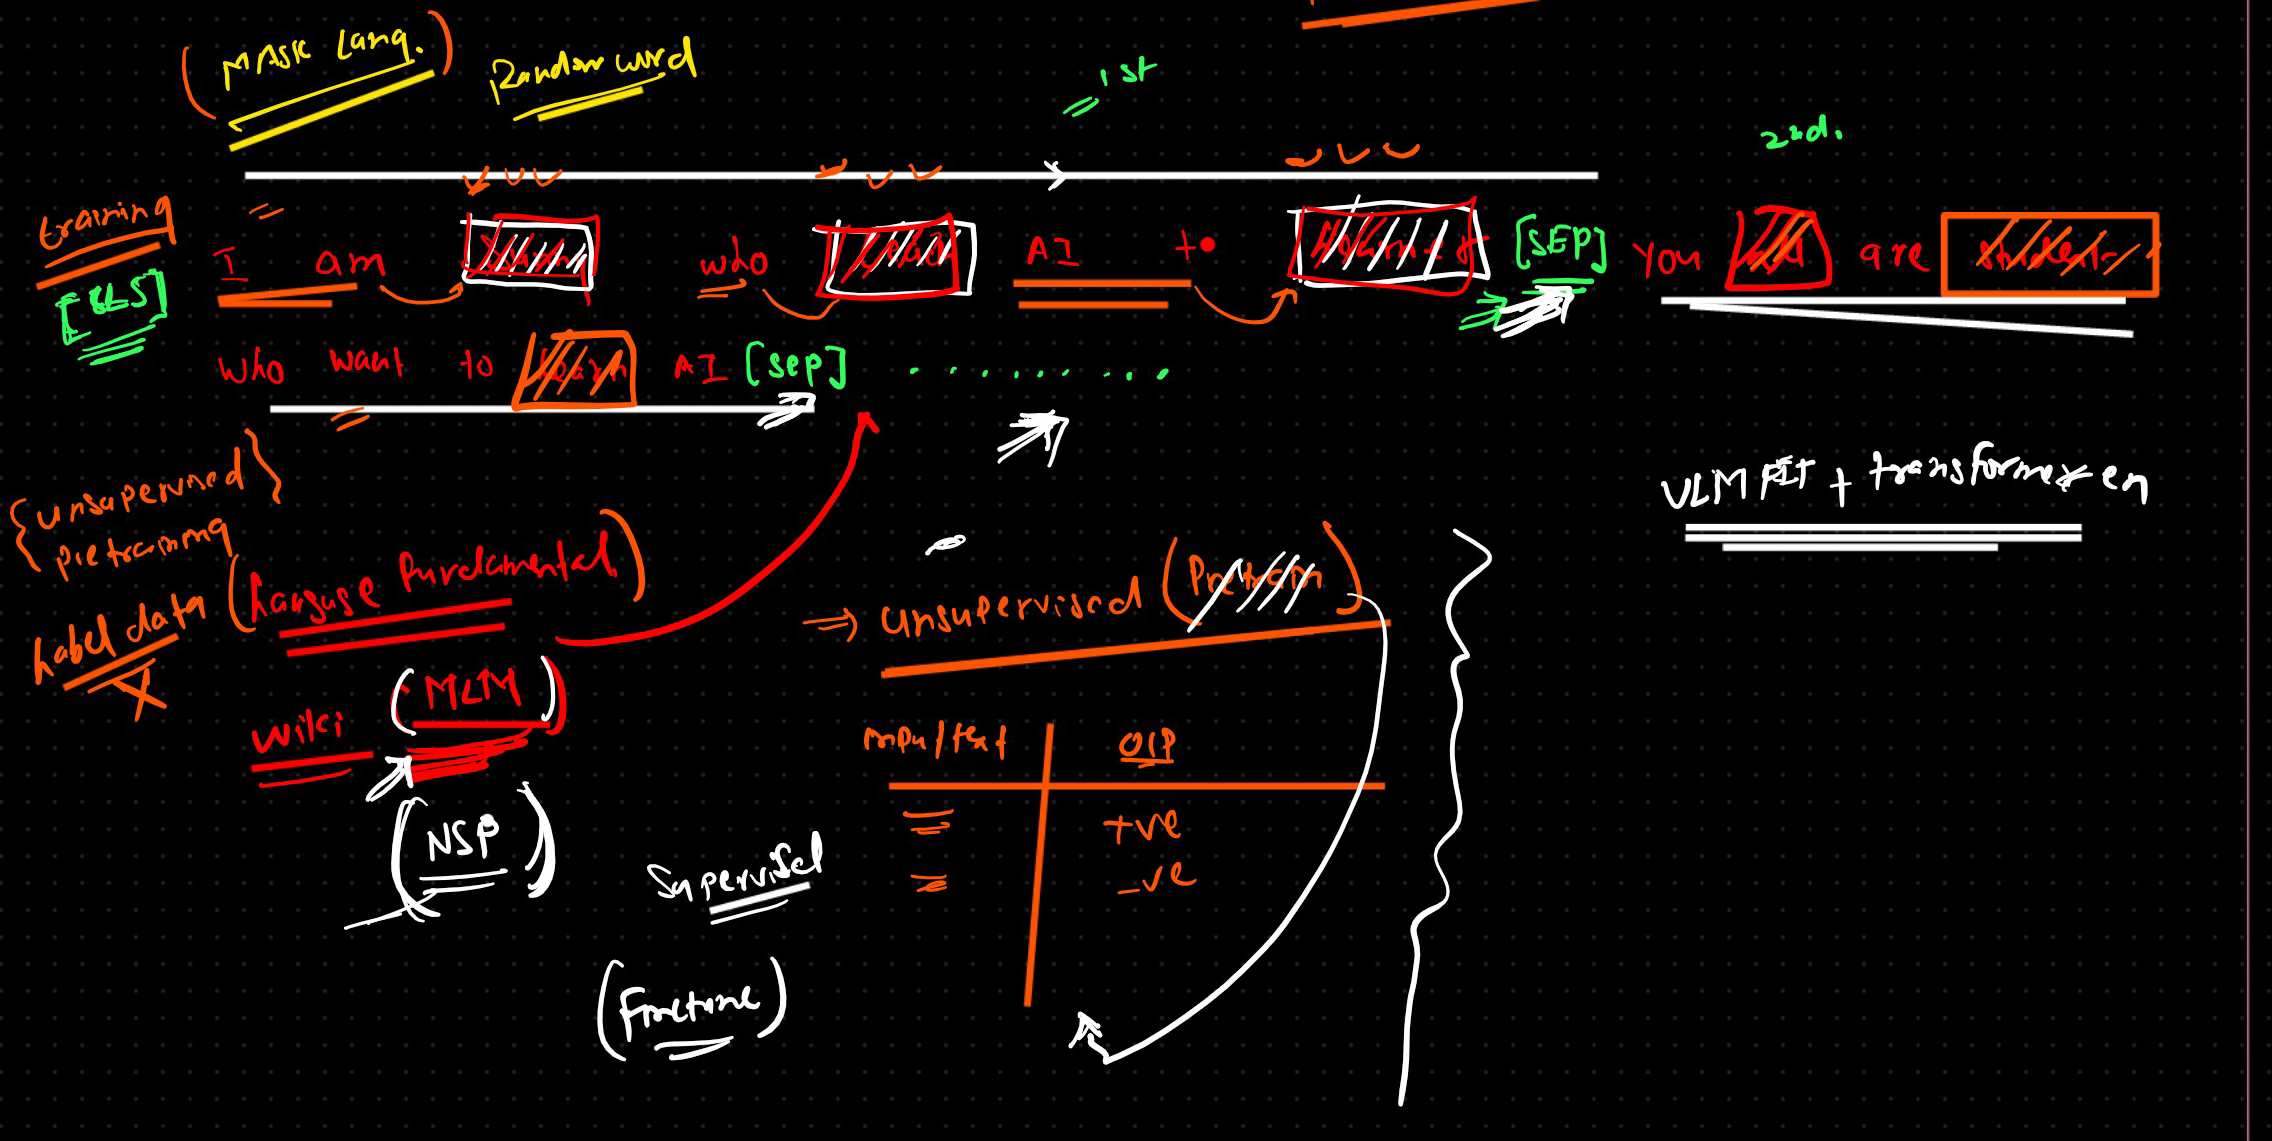 (MASK Lang.)
Random word
1st
2nd.
training
[CLS] I am who AI to [SEP] You are
who want to learn AI [Sep] ..........
{unsupervised
pretraining}
Label data
(Language fundamental)
wiki
(MLM)
(NSP)
Supervised
(Finetune)
⇒ unsupervised (Pretrain)
input/text O/P
+ve
-ve
ULMFIT + transformer en